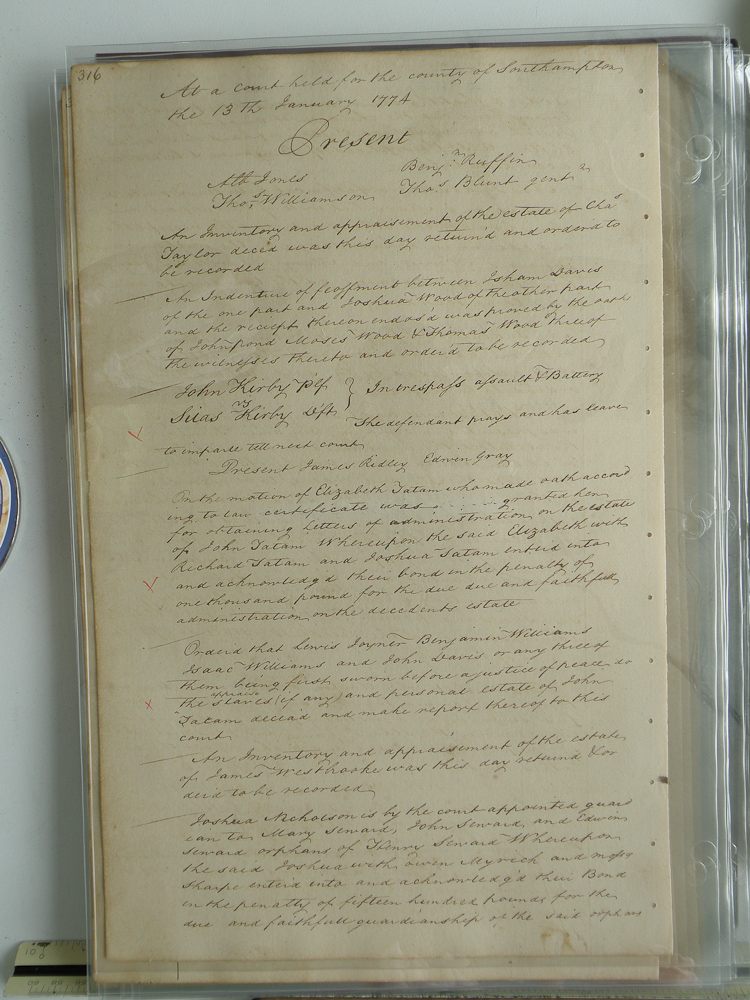 316
At a court held for the county of Southampton
the 13th January 1774
Present
Alb Jones
Benjn Ruffin
Thos Williamson
Thos Blunt gents
An Inventory and appraisement of the estate of Chas
Taylor deced was this day return'd and orderd to
be recorded
An Indenture of feoffment between Isham Davis
of the one part and Joshua Wood of the other part
and the receipt thereon endosd was proved by the oaths
of John pond Moses Wood & Thomas Wood three of
the witnesses thereto and order'd to be recorded
John Kirby Plf } In trespass assault & Battery
vs
Silas Kirby Dft
The defendant prays and has leave
to imparle tell next court
Present James Ridley Edwin Gray
On the motion of Elizabeth Tatam who made oath accord
ing to law certificate was granted her
for obtaining letters of administration on the estate
of John Tatam Whereupon the said Elizabeth with
Richard Tatam and Joshua Tatam enterd into
and acknowledg'd their bond in the penalty of
one thousand pound for the due due and faithfull
administration on the decedents estate
Orderd that Lewis Joyner Benjamin Williams
Isaac Williams and John Davis or any three of
them being first sworn before a justice of peace do
appraise
the slaves (if any) and personal estate of John
Tatam deceasd and make report thereof to this
court
An Inventory and appraisement of the estate
of James Westbrooke was this day returnd & or
derd to be recorded
Joshua Nicholson is by the court appointed guar
ean to Mary Seward, John Seward, and Edwin
Seward orphans of Henry Seward Whereupon
the said Joshua with Owen Myrick and
Sharpe enter'd into and acknowledg'd their Bond
in the penalty of fifteen hundred pounds for the
due and faithfull guardianship of the said orphans